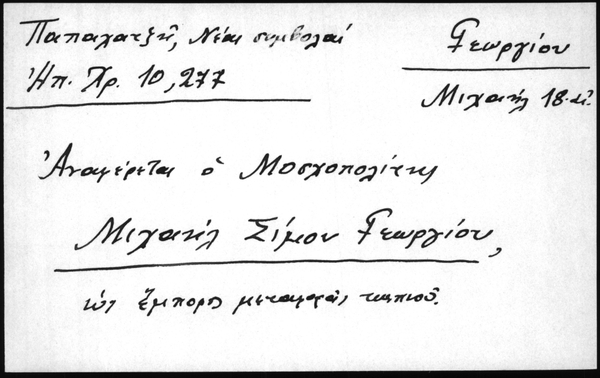 Παπαχατζῆ, Νέαι συμβολαί
Ἠπ. Χρ. 10, 277
Γεωργίου
Μιχαήλ 18.αἰ.
Ἀναφέρεται ὁ Μοσχοπολίτης
Μιχαήλ Σίμου Γεωργίου,
ὡς ἔμπορος